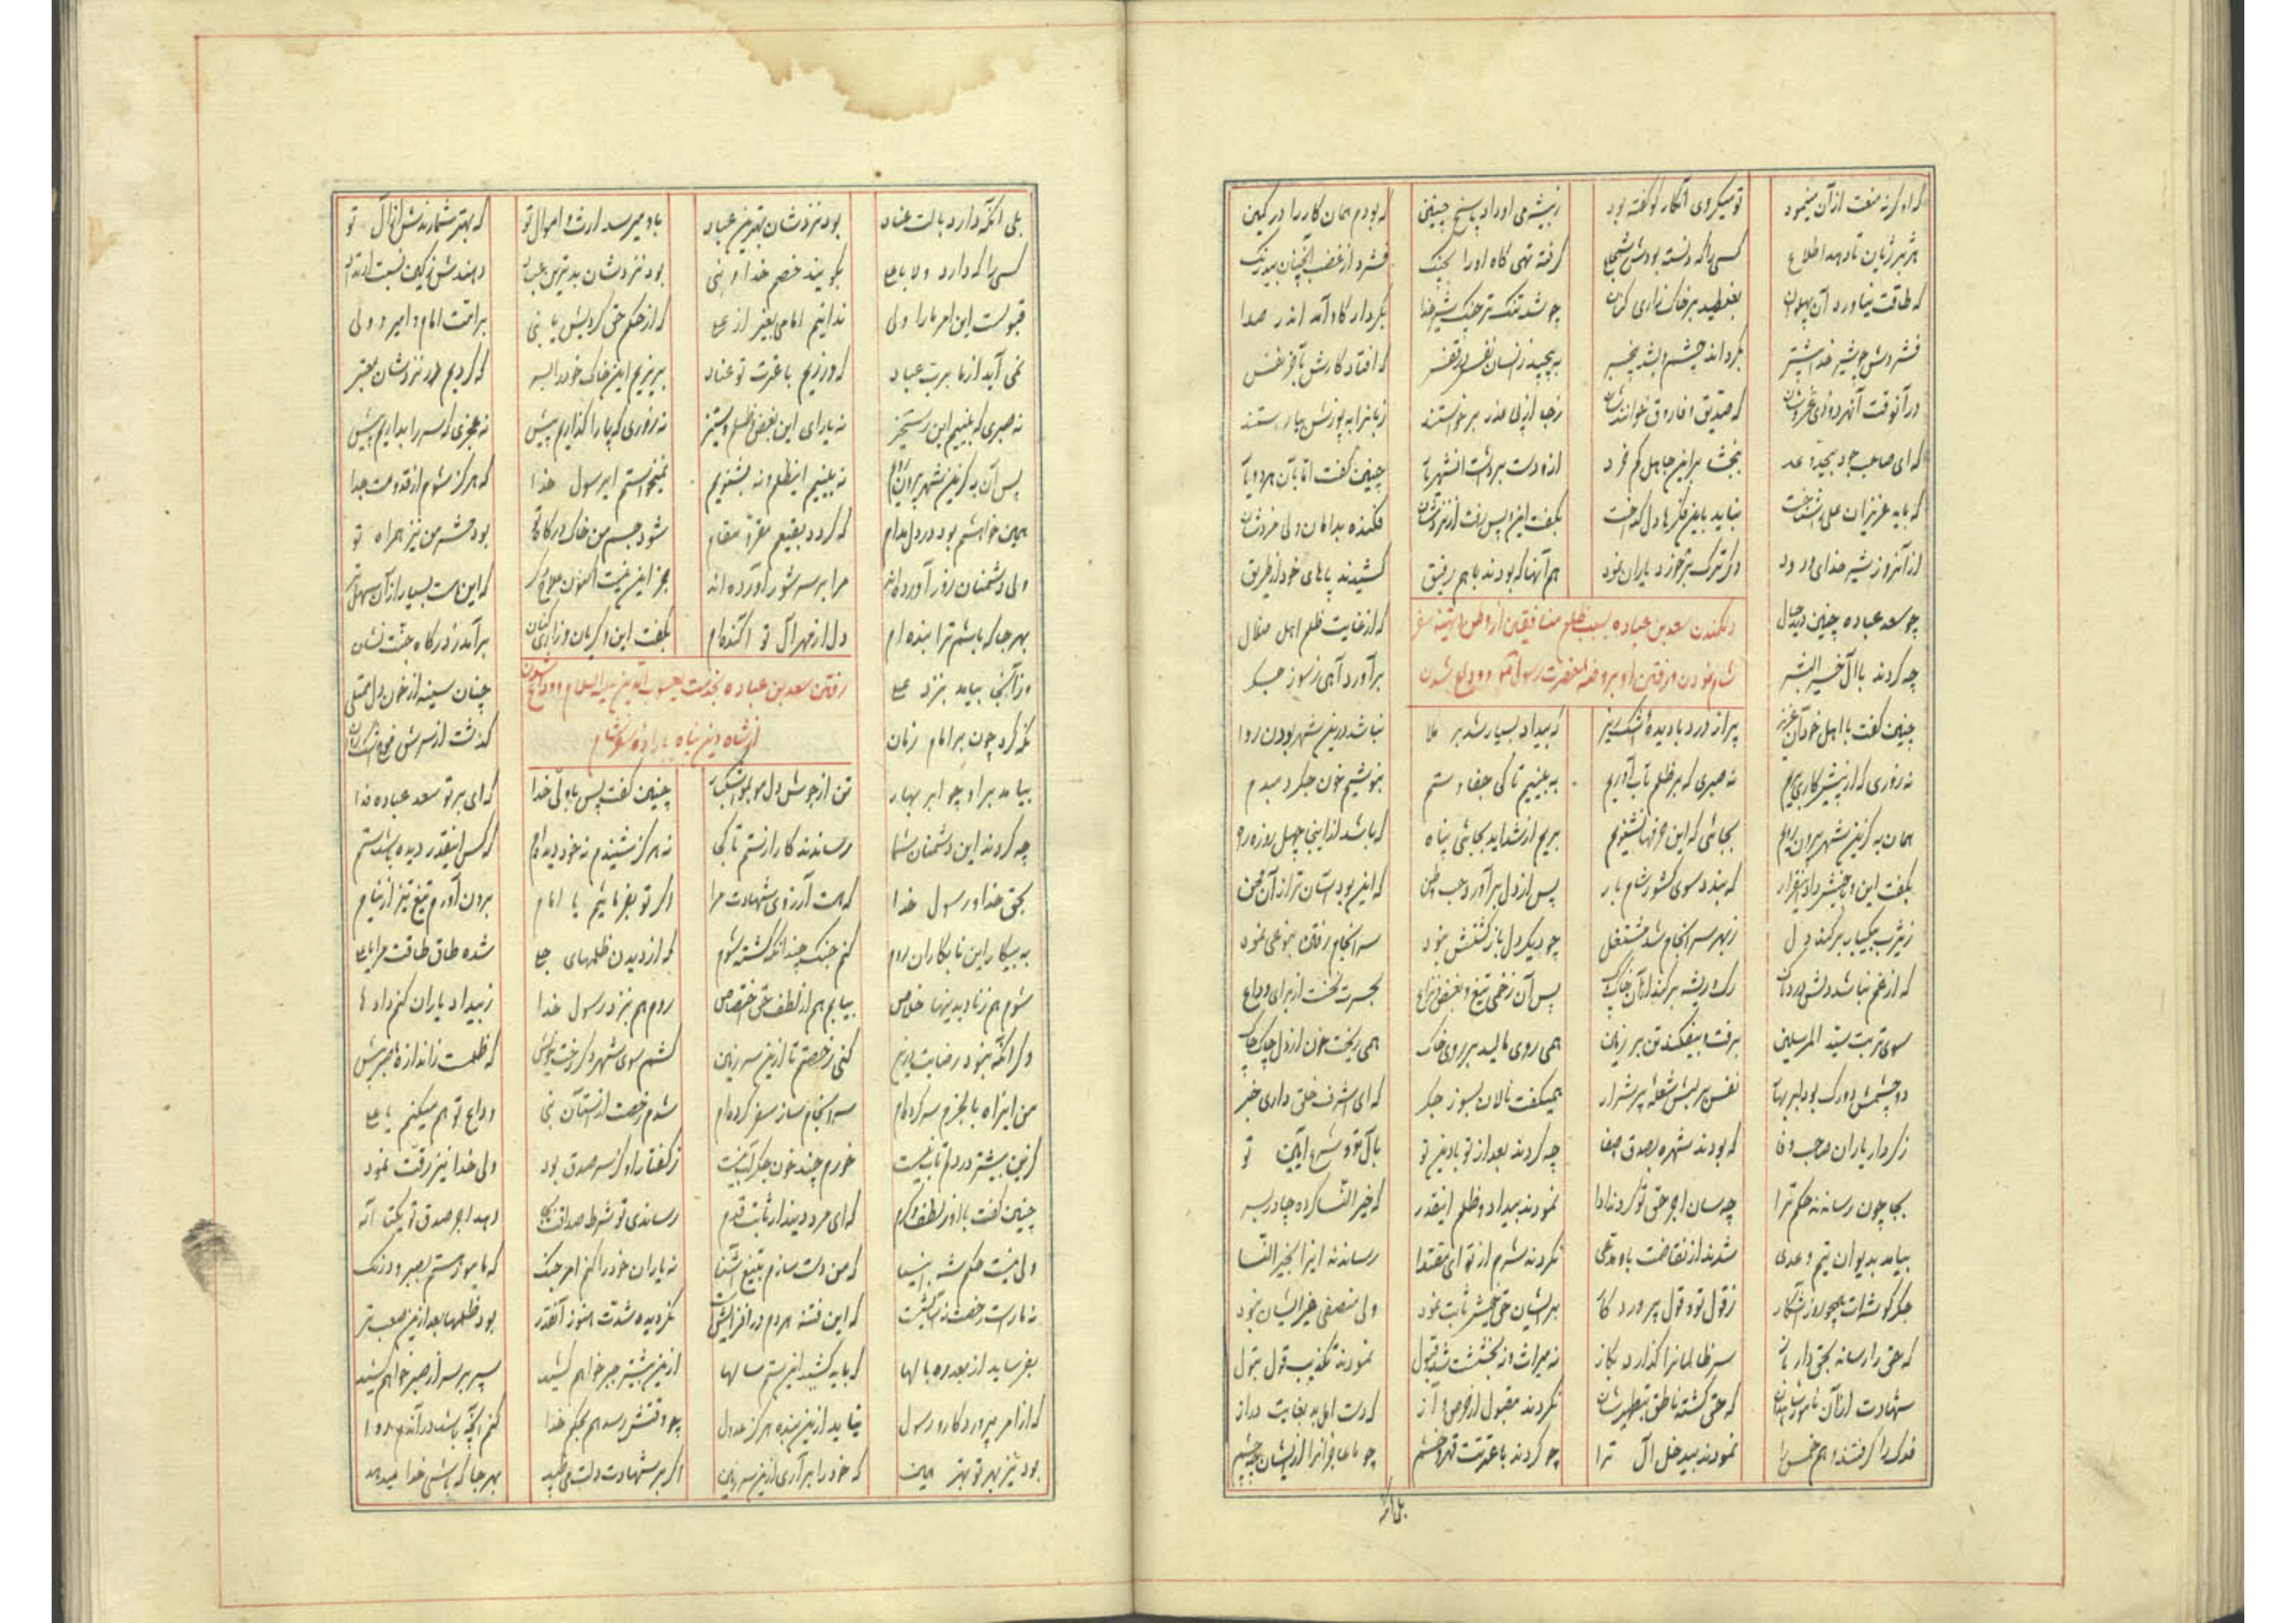 که او کرنه منعت از آن مینمود تو میکردی انکار کو گفته بود ز بیشرمی او داد پاسخ چنین که بودم همان کار را در کمین
هژبر ژیان تا دهد اطلاع کسی را که دانسته بودش شجاع گرفته تهی گاه او را بچنگ فشرد از غضب آنچنان بیدرنگ
که طاقت نیاورد آن پهلوان بغلطید بر خاک زاری کنان چو شد تنگ تر چنگ شیر خدا بکردار گاو آمد اندر صدا
فشردش چو شیر خدا بیشتر بگرداند چشم و بشد بیخبر به پیچید زانسان نفس در قفس که افتاد کارش بآخر نفس
در آنوقت آنهر دو ذی عز و شان که صدیق و فاروق خوانندشان ز جا از پی عذر برخواستند زبانرا به پوزش بیاراستند
که ای صاحب جود بیحد و عد ببخشا بر این جاهل کم خرد
که باید عزیزان علی را شناخت نباید باین مکرها دل گداخت بگفت این و پس رفت از نزدشان فکنده بدامان ولی مزدشان
از آنروز شیر خدای ودود دگر ترک برخورد یاران نمود هم آنها که بودند با هم رفیق کشیدند پاهای خود از طریق
چو سعد عباده چنین دید حال دلکندن سعد بن عباده بسبب ظلم منافقین از وطن و تهیه سفر که از غایت ظلم اهل ضلال
چه کردند با آل خیر البشر شام نمودن و رفتن او بروضه حضرت رسول و وداع شدن برآورد آهی ز سوز جگر
چنین گفت با اهل خود آن عزیز پر از درد با دیده اشک ریز که بیداد بسیار شد بر ملا نباشد درین شهر بودن روا
نه زوری که از پیش کاری بریم نه صبری که بر ظلم تاب آوریم به بینیم تا کی جفا و ستم بنوشیم خون جگر دمبدم
همان به کزین شهر بیرون رویم بجائی که این حرفها نشنویم بریم از شداید بجائی پناه که باشد از اینجا چهل روزه راه
بگفت این و با خویش داد این قرار که بندد سوی کشور شام بار پس از دل برآورد حب وطن که این بودشان تر از آن محن
ز یثرب بیکبار برکند دل ز بهر سرانجام شد مشتغل چو دیگر دل باز گشتش نبود سرانجام رفتن بنوعی نمود
که از غم نباشد دلش دردناک رگ و ریشه برکند از آن خاک پاک پس آن زخمی تیغ و بغض و نزاع بحسرت نخست از برای وداع
سوی تربت سید المرسلین برفت و بیفکند تن بر زمین همی روی مالید بر روی خاک همی ریخت خون از دل چاک چاک
دو چشمش دو رگ بود ابر بهار نفس بر لبش شعله پر شرار همیگفت نالان بسوز جگر که ای اشرف خلق داری خبر
ز کردار یاران صاحب وفا که بودند شهره بصدق صفا چه کردند بعد از تو با دین تو بآل تو و شرع آیین تو
بجا چون رساندند حکم ترا چه سان اجر حق تو کردند ادا نمودند بیداد و ظلم اینقدر که خیر النسا کرده چادر بسر
بیامد بدیوان تیم و عدی شدند از نقاضت باو مدعی نکردند شرم از تو ای مقتدا رساندند ایذا بخیر النسا
جگر گوشه‌ات همچو روز آشکار ز قول تو و قول پروردگار بر ایشان حق خویش ثابت نمود ولی منصفی در میانشان نبود
که حق را رساند بحق دار باز سر ظالمانرا گذارد بگاز نه میراث و نه بخششت شد قبول نمودند تکذیب قول بتول
شهادت از آن ناموران که حق گشته ناطق بتطهیرشان نکردند مقبول از حرص و آز که دست امل بد بغایت دراز
فدک را گرفتند و هم خمس را نمودند بیدخل آل ترا چو کردند با عترتت قهر و خشم چو ما عاجزانرا از ایشان چه چشم
بلی آنکه
بلی آنکه دارد بآلت عناد بود نزدشان بهترین عباد باو میرسد ارث و اموال تو که بهتر شمارندش از آل تو
کسی را که دارد ولا با علی بگویند خصم خدا و نبی بود نزدشان بدترین عباد دهندش ز کین نسبت ارتداد
قبولست این امر ما را ولی ندانیم امامی بغیر از علی که از حکم حق کردیش یا نبی بر امت امام و امیر و ولی
نمی آید از ما برت عباد که ورزیم با عترت تو عناد بریزیم این خاک خود را بسر که گردیم در نزدشان معتبر
نه صبری که بینیم این رستخیز نه یارای این بغض و ظلم و ستیز نه زوری که پا را گذاریم پیش نه عجزی که سر را بداریم پیش
پس آن به کزین شهر بیرون رویم نه بینیم این ظلم و نه بشنویم نمیخواستم ای رسول خدا که هرگز شوم از قدومت جدا
همین خواهشم بود در دل مدام که گردد بقیعم مقر و مقام شود جسم من خاک درگاه تو بود حشر من نیز همراه تو
ولی دشمنان زور آورده‌اند مرا بر سر شور آورده‌اند بجز این نیست اکنون علاج دگر که این هست بسیار از آن سهل تر
بهر جا که باشم ترا بنده ام دل از مهر آل تو آکنده‌ام بگفت این و گریان و زاری کنان برآمد ز درگاه جنت نشان
وز آنجا بیامد بنزد علی رفتن سعد بن عباده بخدمت یعسوب الدین علیه السلام و وداع نمودن چنان سینه از خون دل ممتلی
نگه کرد چون بر امام زمان از شاه دین پناه باراده شام گذشت از سرش موج اشک روان
بیامد براو چو ابر بهار تن از جوش دل چنین گفت پس با ولی خدا که ای بر تو سعد عباده فدا
چه کردند این دشمنان شما رساندند کار از ستم تا کجا نه هرگز شنیدم نه خود دیده‌ام که کس اینقدر دیده باشد ستم
بحق خدا و رسول خدا که هست آرزوی شهادت مرا اگر تو بفرمائیم یا امام برون آورم تیغ تیز از نیام
به پیکار این نابکاران روم کنم جنگ چندانکه کشته شوم که از دیدن ظلمهای جلی شده طاق طاقت مرا یا علی
شوم هم ز نادیدنیها خلاص بیابم هم از لطف حق اختصاص روم هم بنزد رسول خدا ز بیداد یاران کنم دادها
وگر آنکه نبود رضایت برین کنی رخصتم تا ازین سرزمین کشم سوی شهر دگر رخت خویش که ظلمست ز اندازه صبر بیش
من این راه بالجزم سر کرده‌ام سرانجام ساز سفر کرده‌ام شدم رخصت از آستان نبی وداع تو هم میکنم یا علی
کزین بیشتر در دلم تاب نیست خورم چند خون جگر آب نیست ز گفتار او کز سر صدق بود ولی خدا نیز رقت نمود
چنین گفت با او ز لطف و کرم که ای مرد دیندار ثابت قدم رساندی تو شرط صداقت بجا دهد اجر صدق تو یکتا اله
ولی نیست حکم شه انبیا که من دست سازم بتیغ آشنا نه یاران خود را کنم امر جنگ که مامور هستم بصبر و درنگ
که این فتنه هر دم در افزایش است نگردیده شدت هنوز آنقدر بود ظلمها بعد ازین صعب تر
بفرساید از بعد ده سالها که باید کشید این ستم سالها ازین بیشتر جبر خواهم کشید سپر بر سر از صبر خواهم کشید
که از امر پروردگار و رسول نیاید ازین بنده هرگز عدول چو وقتش رسد هم بحکم خدا کنم آنچه باشد در آندم روا
بود نیز بهر تو بهتر همین که خود را برآری ازین سرزمین اگر بر شهادت دلت می طپد بهر جا که باشی خدا میدهد